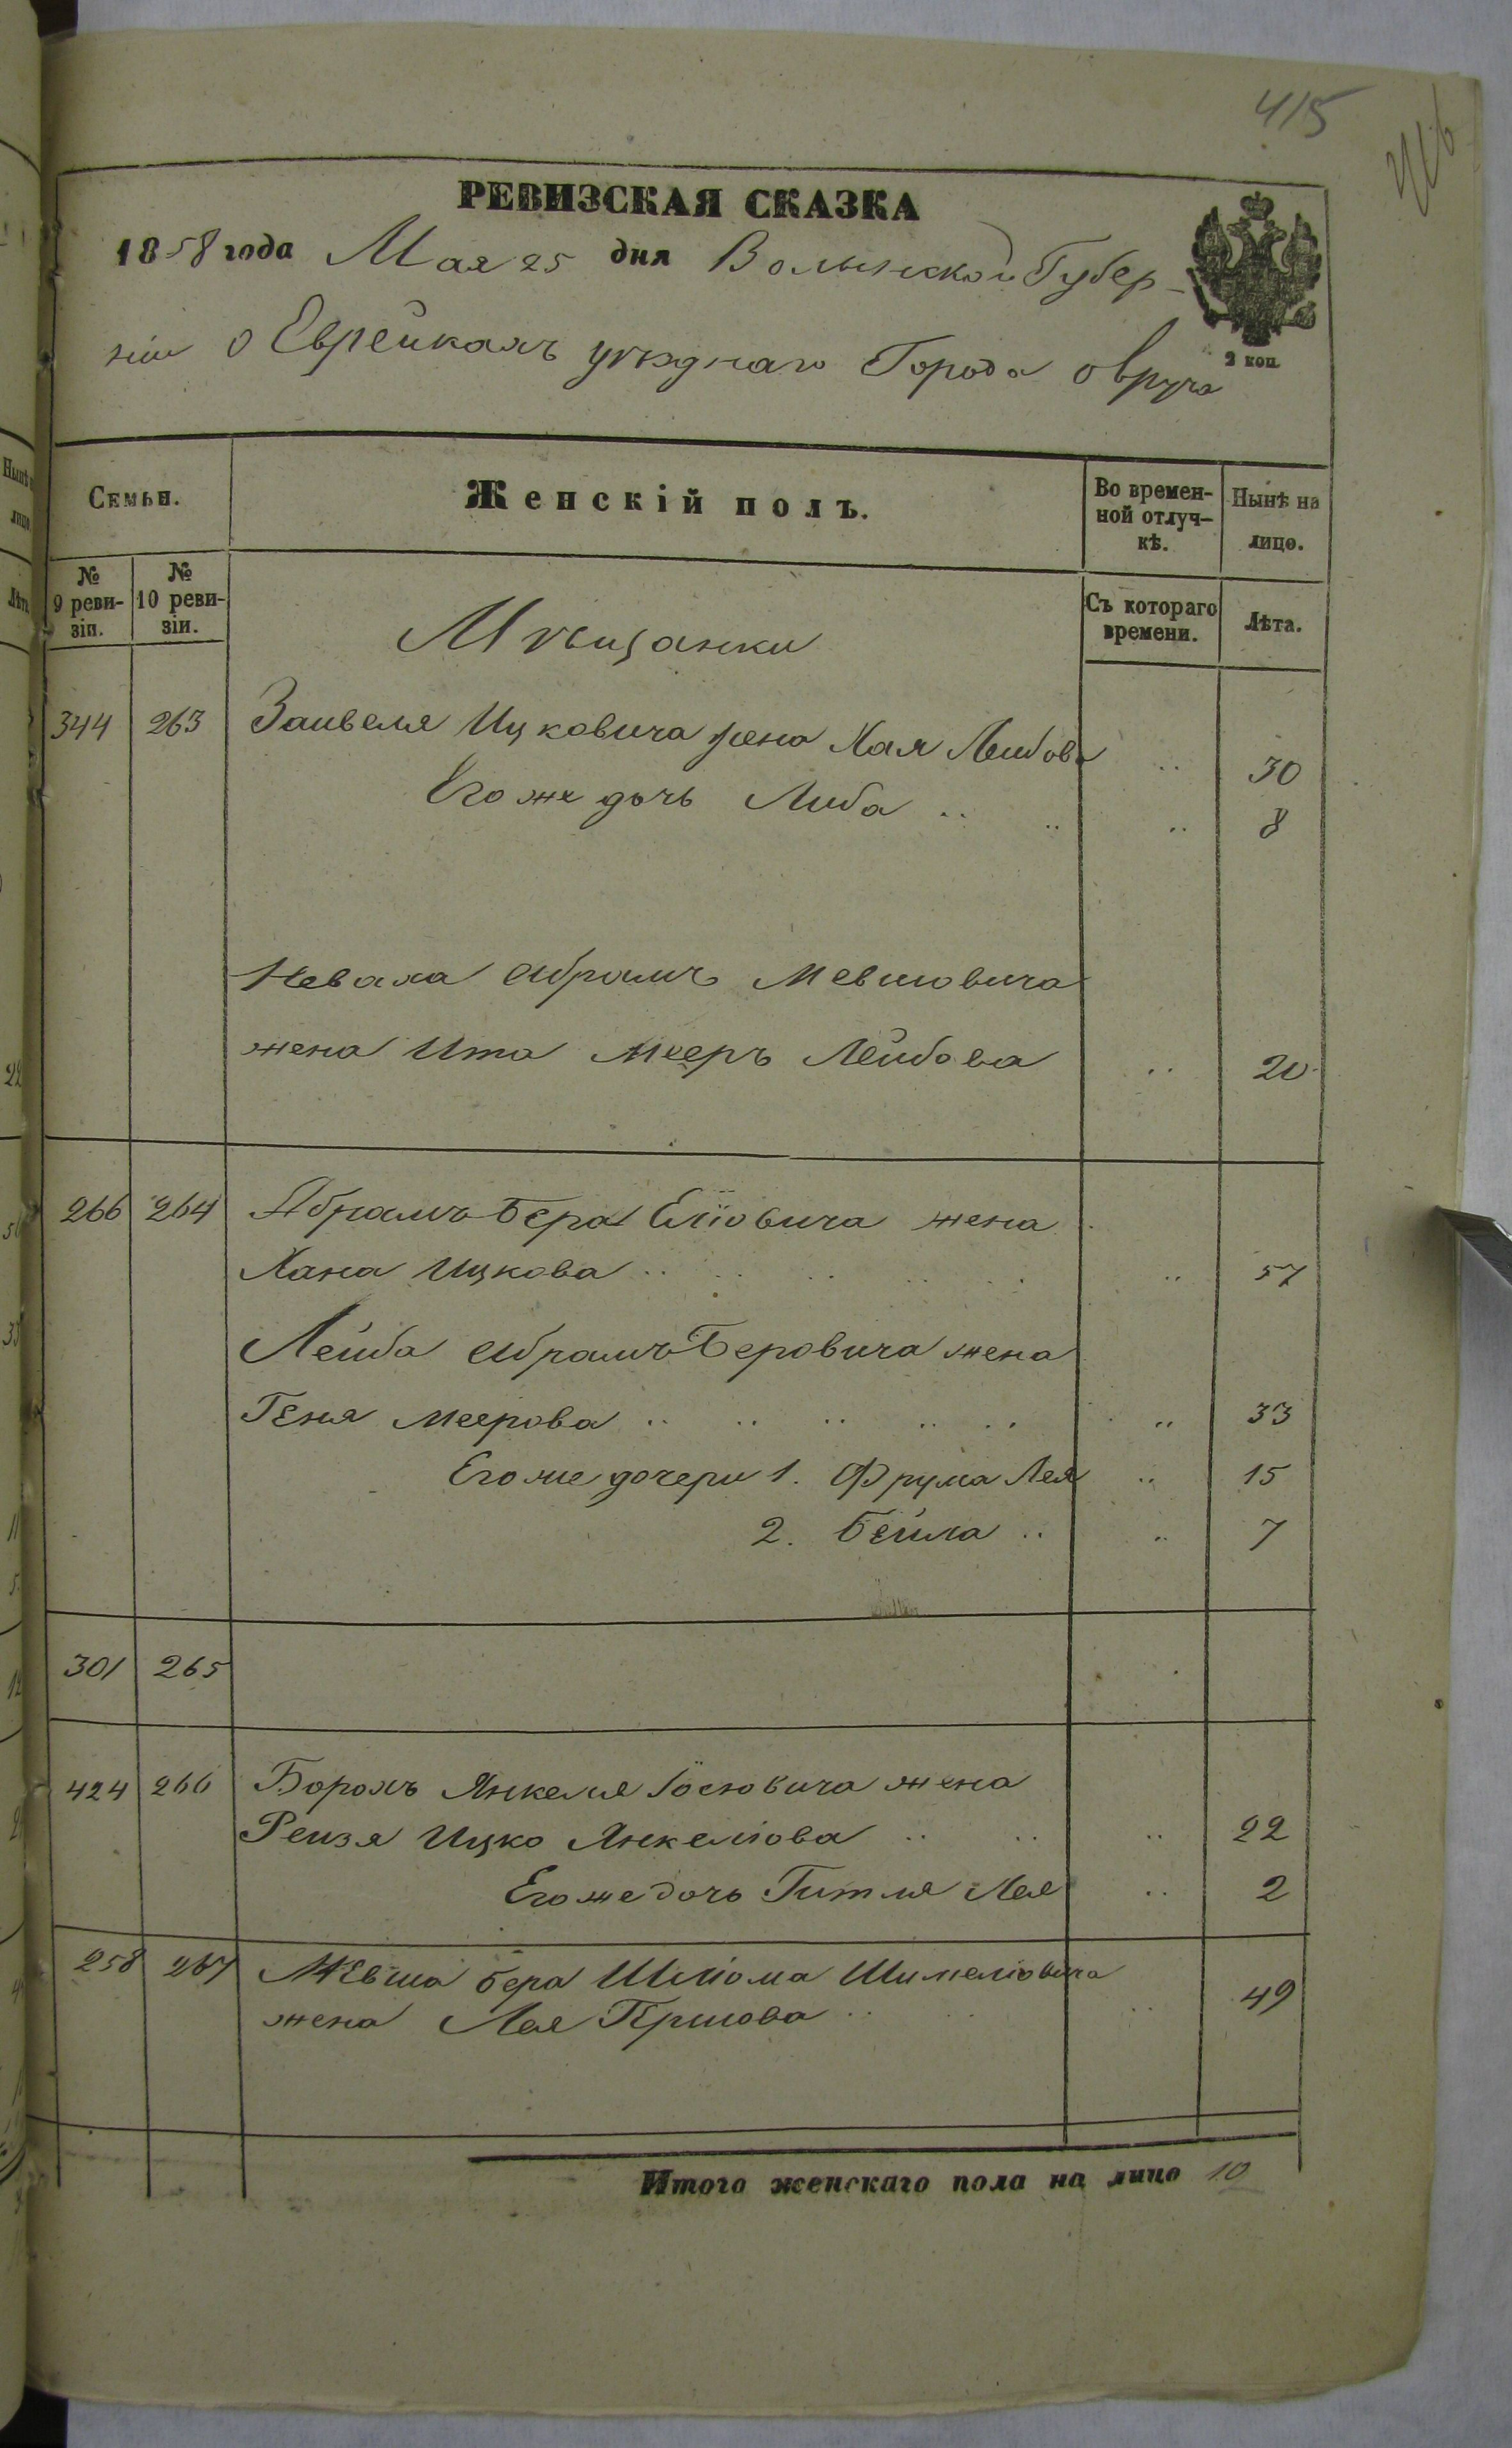 415
РЕВИЗСКАЯ СКАЗКА
1858 года Мая 25 дня Волынской Губер-
ніи о Еврейкахъ уѣзднаго Города Овруча
2 коп.
Семьи.
Женскій полъ.
Во времен-
ной отлуч-
кѣ.
Нынѣ на
лицо.
№
9 реви-
зіи.
№
10 реви-
зіи.
Съ котораго
времени.
Лѣта.
Мѣщанки
344 263 Заивеля Ицковича жена Хая Лейбова .. 30
Его же дочь Либа .. .. .. 8
Абрамъ Мевшовича
жена Ита Мееръ Лейбова .. 20
266 264 Абрамъ Бера Еліовича жена
Хана Ицкова .. .. .. .. .. .. 57
Лейба Абрамъ Беровича жена
Геня Меерова .. .. .. .. .. .. 33
Его же дочери 1. Фрума Лея .. 15
2. Бейла .. .. 7
301 265
424 266 Борохъ Янкеля Іосіовича жена
Рейзя Ицко Янкеліова .. .. .. 22
Его же дочь Гитля Лея .. 2
258 267 Мевша Бера Шліома Шимеліовича
жена Лея Гершова .. .. .. 49
Итого женскаго пола на лицо 10